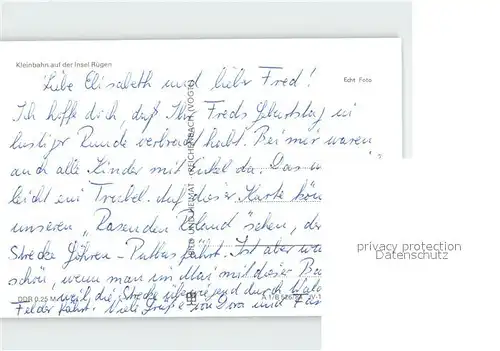 Kleinbahn auf der Insel Rügen
Echt Foto
Liebe Elisabeth und lieber Fred!
Ich hoffe doch, daß Ihr Freds Geburtstag in
lustiger Runde verbracht habt. Bei mir waren
auch alle Kinder mit Enkel da. Das
leicht ein Trubel. Auf dieser Karte kön
unseren „Rasenden Roland" sehen, der
Strecke Göhren - Putbus fährt. Ist aber
schön, wenn man im Mai mit dieser Ba
weil die Strecke überwiegend durch Wald
Felder führt. Viele Grüße von Dora und
BILD UND HEIMAT REICHENBACH (VOGTL)
DDR 0,25 M
A 1/B
privacy protection
Datenschutz